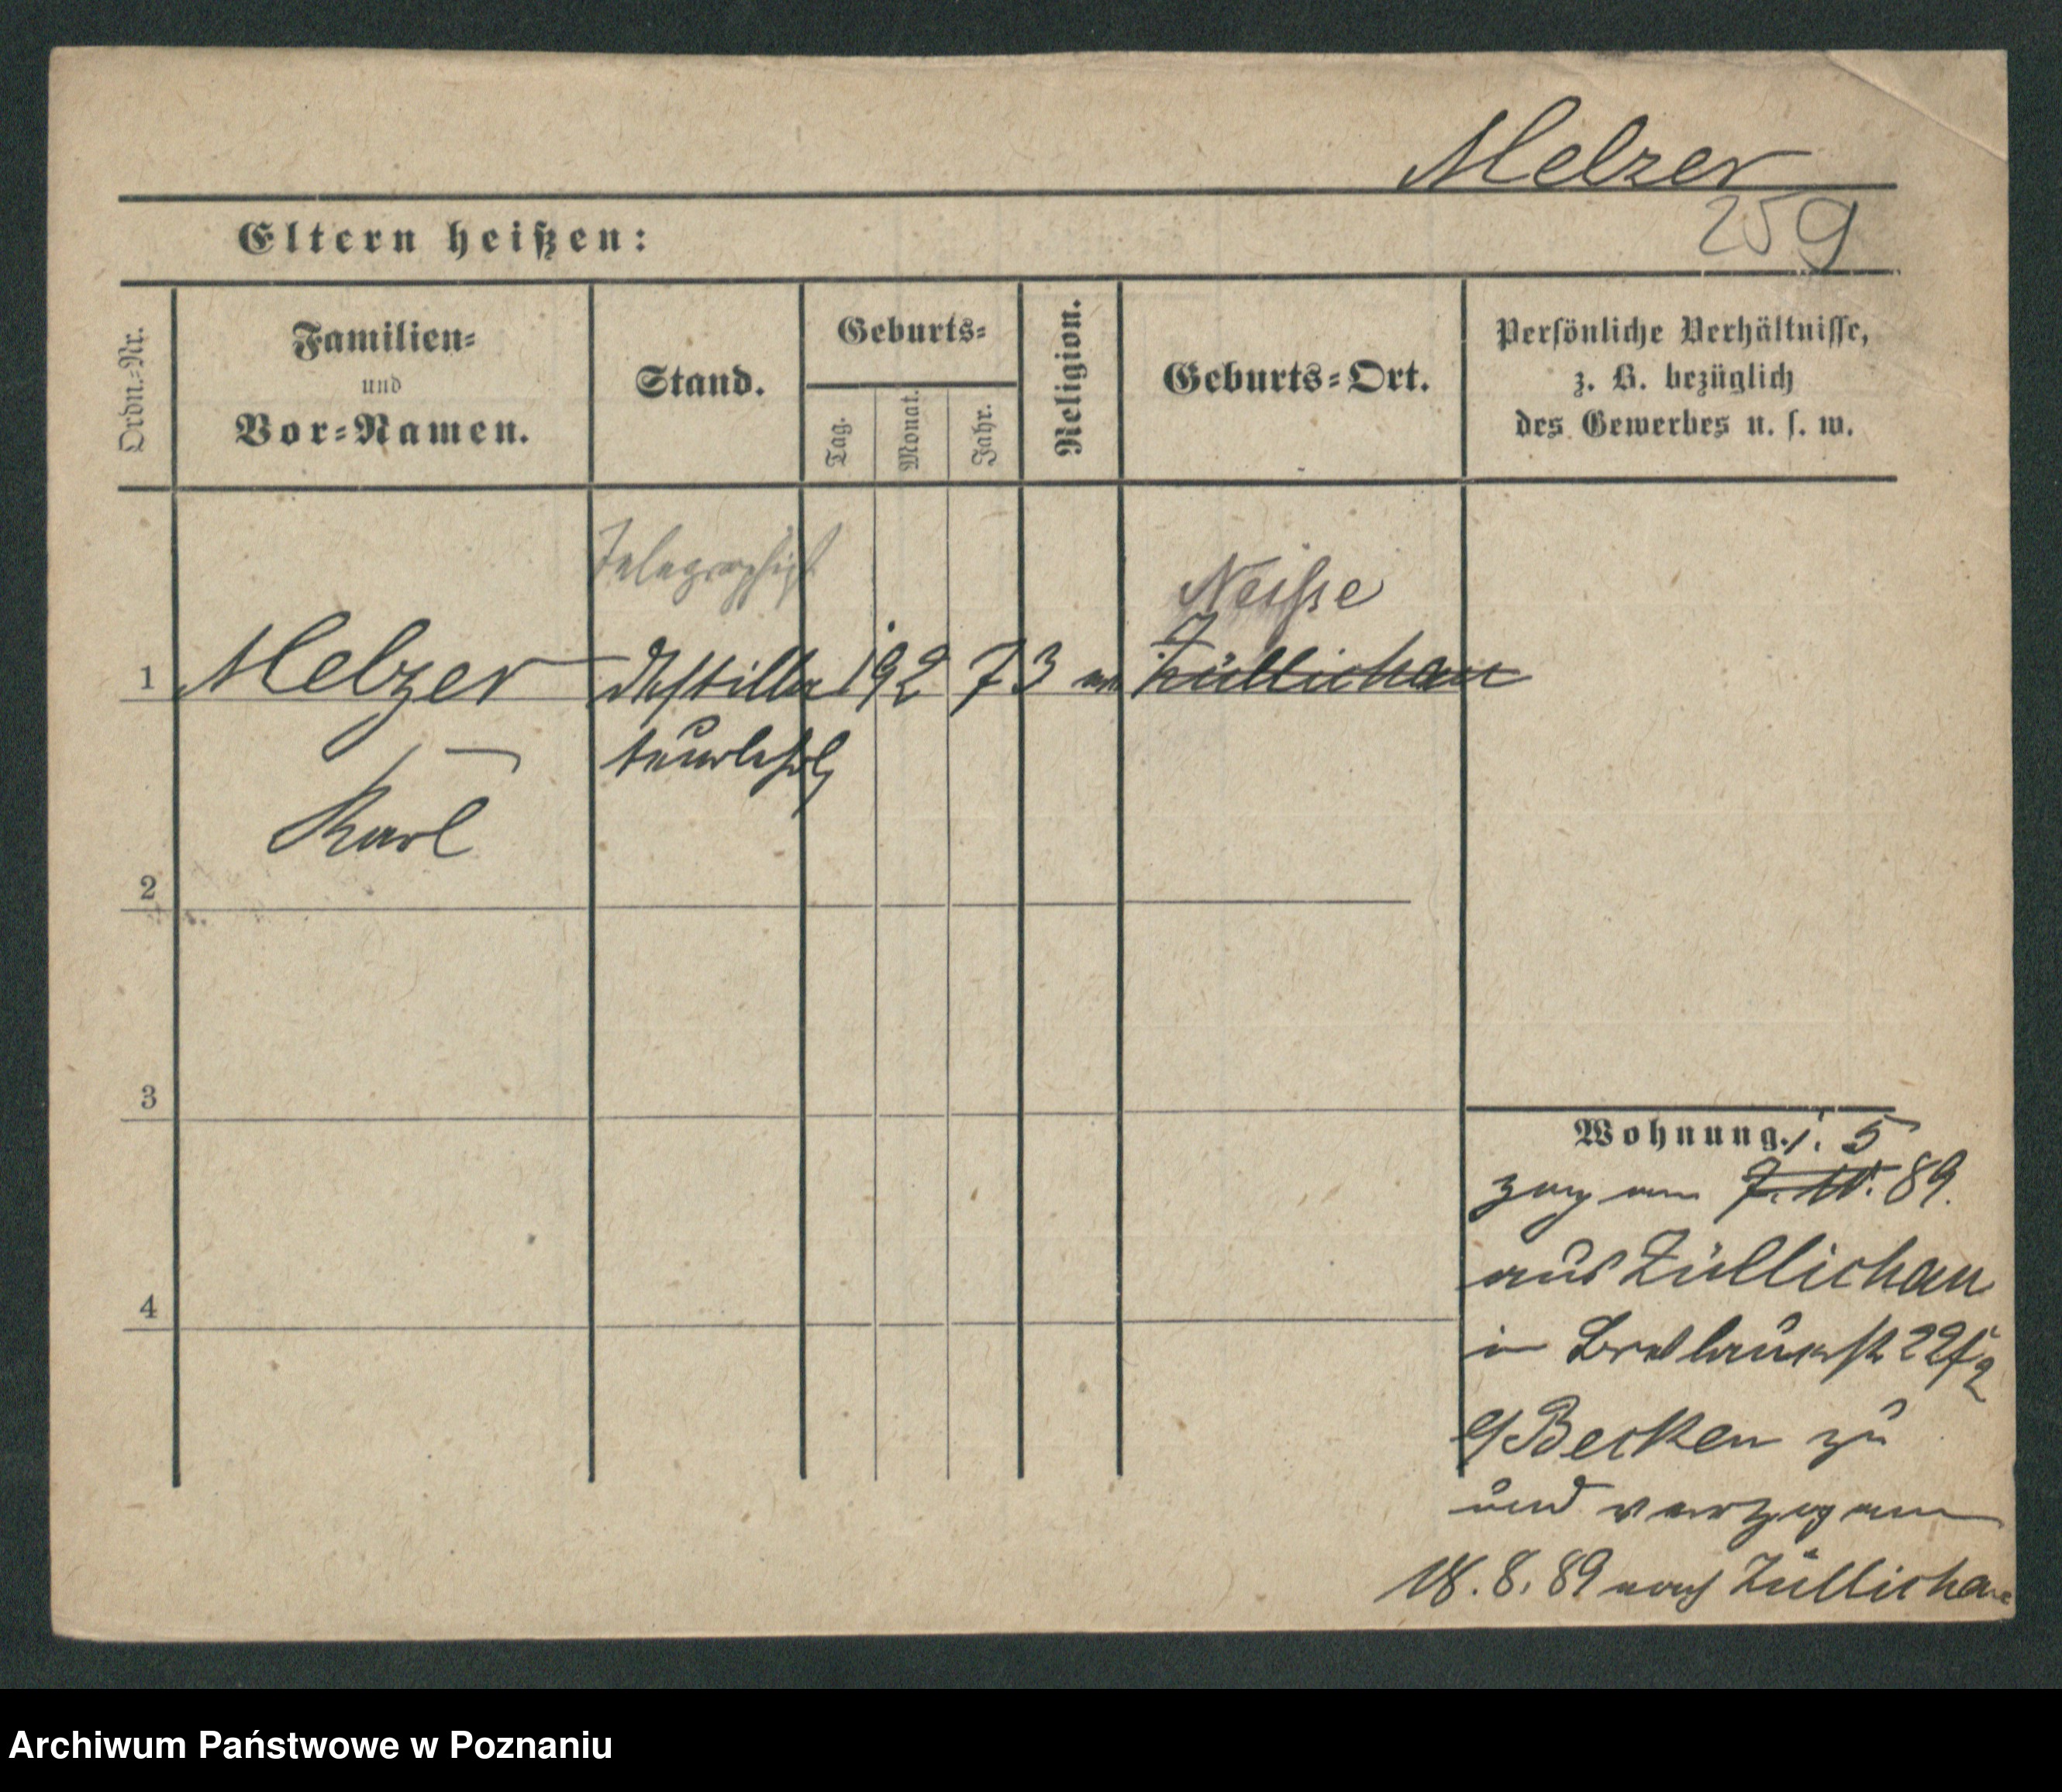 Melzer
259
Eltern heißen:
Ordn.-Nr.
Familien-
und
Vor-Namen.
Stand.
Geburts-
Tag.
Monat.
Jahr.
Religion.
Geburts-Ort.
Persönliche Verhältnisse,
z. B. bezüglich
des Gewerbes u. s. w.
Telegraphist
Neisse
1 Melzer 19 2 73 Züllichau
Karl
2
3
4
Wohnung. 1. 5
zog am 7. 10. 89.
aus Züllichau
in 22
Becken zu
und verzog am
18. 8. 89 nach Züllichau
Archiwum Państwowe w Poznaniu